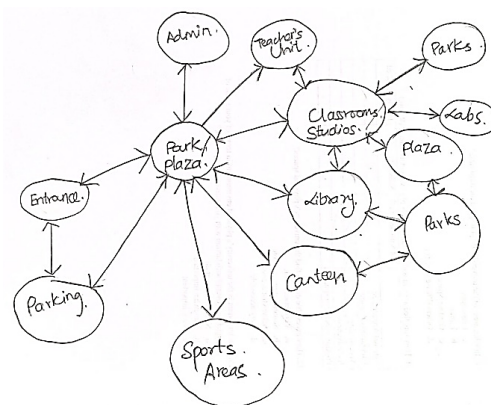 Admin.
Teacher's
Unit.
Parks.
Classrooms.
Studios.
Labs.
Park
plaza.
Plaza
Entrance.
Library.
Parks
Canteen
Parking.
Sports.
Areas.